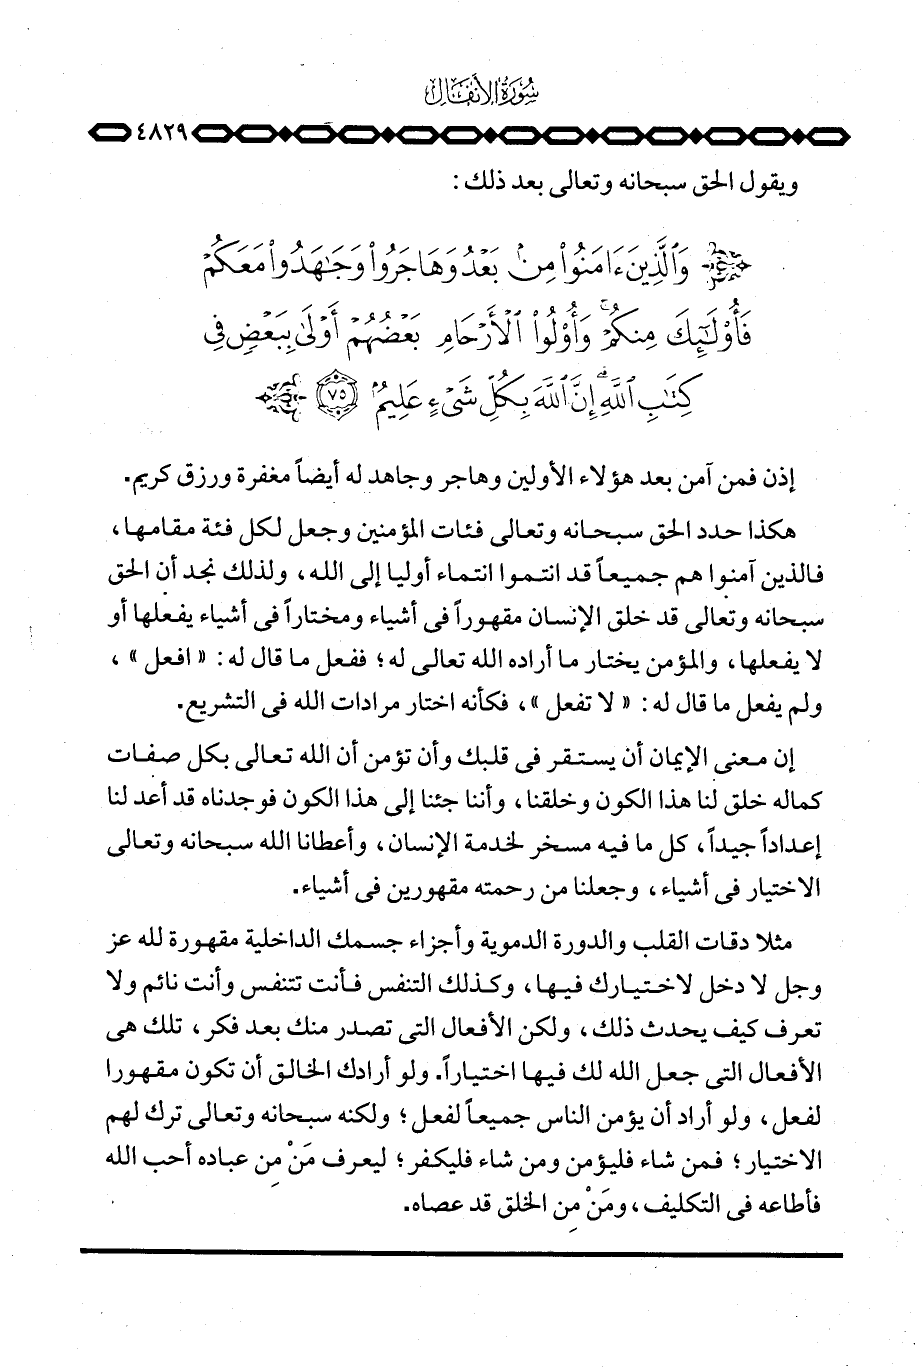 سُورَةُ الأَنفَالِ
٤٨٢٩
ويقول الحق سبحانه وتعالى بعد ذلك :
وَٱلَّذِينَ ءَامَنُوا۟ مِنۢ بَعْدُ وَهَاجَرُوا۟ وَجَـٰهَدُوا۟ مَعَكُمْ
فَأُو۟لَـٰٓئِكَ مِنكُمْ ۚ وَأُو۟لُوا۟ ٱلْأَرْحَامِ بَعْضُهُمْ أَوْلَىٰ بِبَعْضٍ فِى
كِتَـٰبِ ٱللَّهِ ۗ إِنَّ ٱللَّهَ بِكُلِّ شَىْءٍ عَلِيمٌۢ ٧٥
إذن فمن آمن بعد هؤلاء الأولين وهاجر وجاهد له أيضاً مغفرة ورزق كريم.
هكذا حدد الحق سبحانه وتعالى فئات المؤمنين وجعل لكل فئة مقامها،
فالذين آمنوا هم جميعاً قد انتموا انتماء أوليا إلى الله، ولذلك نجد أن الحق
سبحانه وتعالى قد خلق الإنسان مقهوراً فى أشياء ومختاراً فى أشياء يفعلها أو
لا يفعلها، والمؤمن يختار ما أراده الله تعالى له؛ ففعل ما قال له: « افعل » ،
ولم يفعل ما قال له: « لا تفعل »، فكأنه اختار مرادات الله فى التشريع.
إن معنى الإيمان أن يستقر فى قلبك وأن تؤمن أن الله تعالى بكل صفات
كماله خلق لنا هذا الكون وخلقنا، وأننا جئنا إلى هذا الكون فوجدناه قد أعد لنا
إعداداً جيداً، كل ما فيه مسخر لخدمة الإنسان، وأعطانا الله سبحانه وتعالى
الاختيار فى أشياء، وجعلنا من رحمته مقهورين فى أشياء.
مثلا دقات القلب والدورة الدموية وأجزاء جسمك الداخلية مقهورة لله عز
وجل لا دخل لاختيارك فيها، وكذلك التنفس فأنت تتنفس وأنت نائم ولا
تعرف كيف يحدث ذلك، ولكن الأفعال التى تصدر منك بعد فكر، تلك هى
الأفعال التى جعل الله لك فيها اختياراً. ولو أرادك الخالق أن تكون مقهورا
لفعل، ولو أراد أن يؤمن الناس جميعاً لفعل؛ ولكنه سبحانه وتعالى ترك لهم
الاختيار؛ فمن شاء فليؤمن ومن شاء فليكفر؛ ليعرف مَنْ مِن عباده أحب الله
فأطاعه فى التكليف، ومَنْ مِن الخلق قد عصاه.